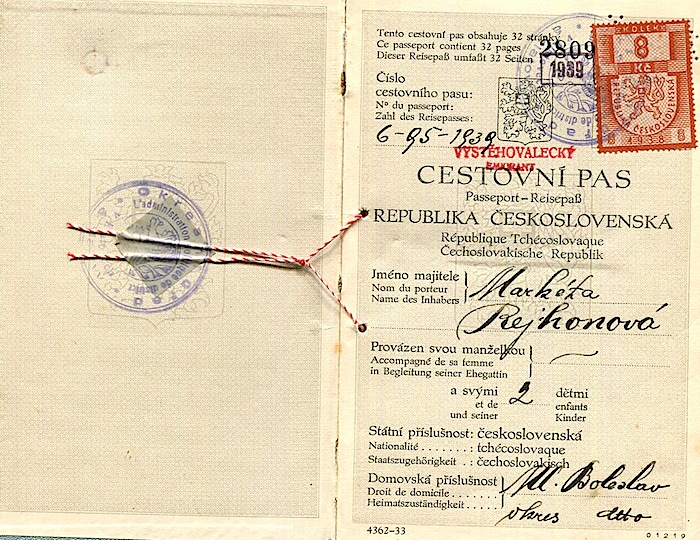 Tento cestovní pas obsahuje 32 stránky
Ce passeport contient 32 pages
Dieser Reisepaß umfaßt 32 Seiten
2809
1939
KOLEK
8
Kč
ČESKOSLOVENSKÁ
8 1938 8
Číslo
cestovního pasu:
No du passeport:
Zahl des Reisepasses:
6-95-1939
VYSTĚHOVALECKÝ
EMIGRANT
CESTOVNÍ PAS
Passeport – Reisepaß
REPUBLIKA ČESKOSLOVENSKÁ
République Tchécoslovaque
Čechoslovakische Republik
Jméno majitele
Nom du porteur
Name des Inhabers
Markéta
Rejhonová
Provázen svou manželkou
Accompagné de sa femme
in Begleitung seiner Ehegattin
a svými 2 dětmi
et de enfants
und seiner Kinder
Státní příslušnost: československá
Nationalité . . . . . . . : tchécoslovaque
Staatszugehörigkeit . . : čechoslovakisch
Domovská příslušnost
Droit de domicile . . . . . .
Heimatszuständigkeit . . . .
Ml. Boleslav
okres dtto
4362-33
01219
L'administration politique de district